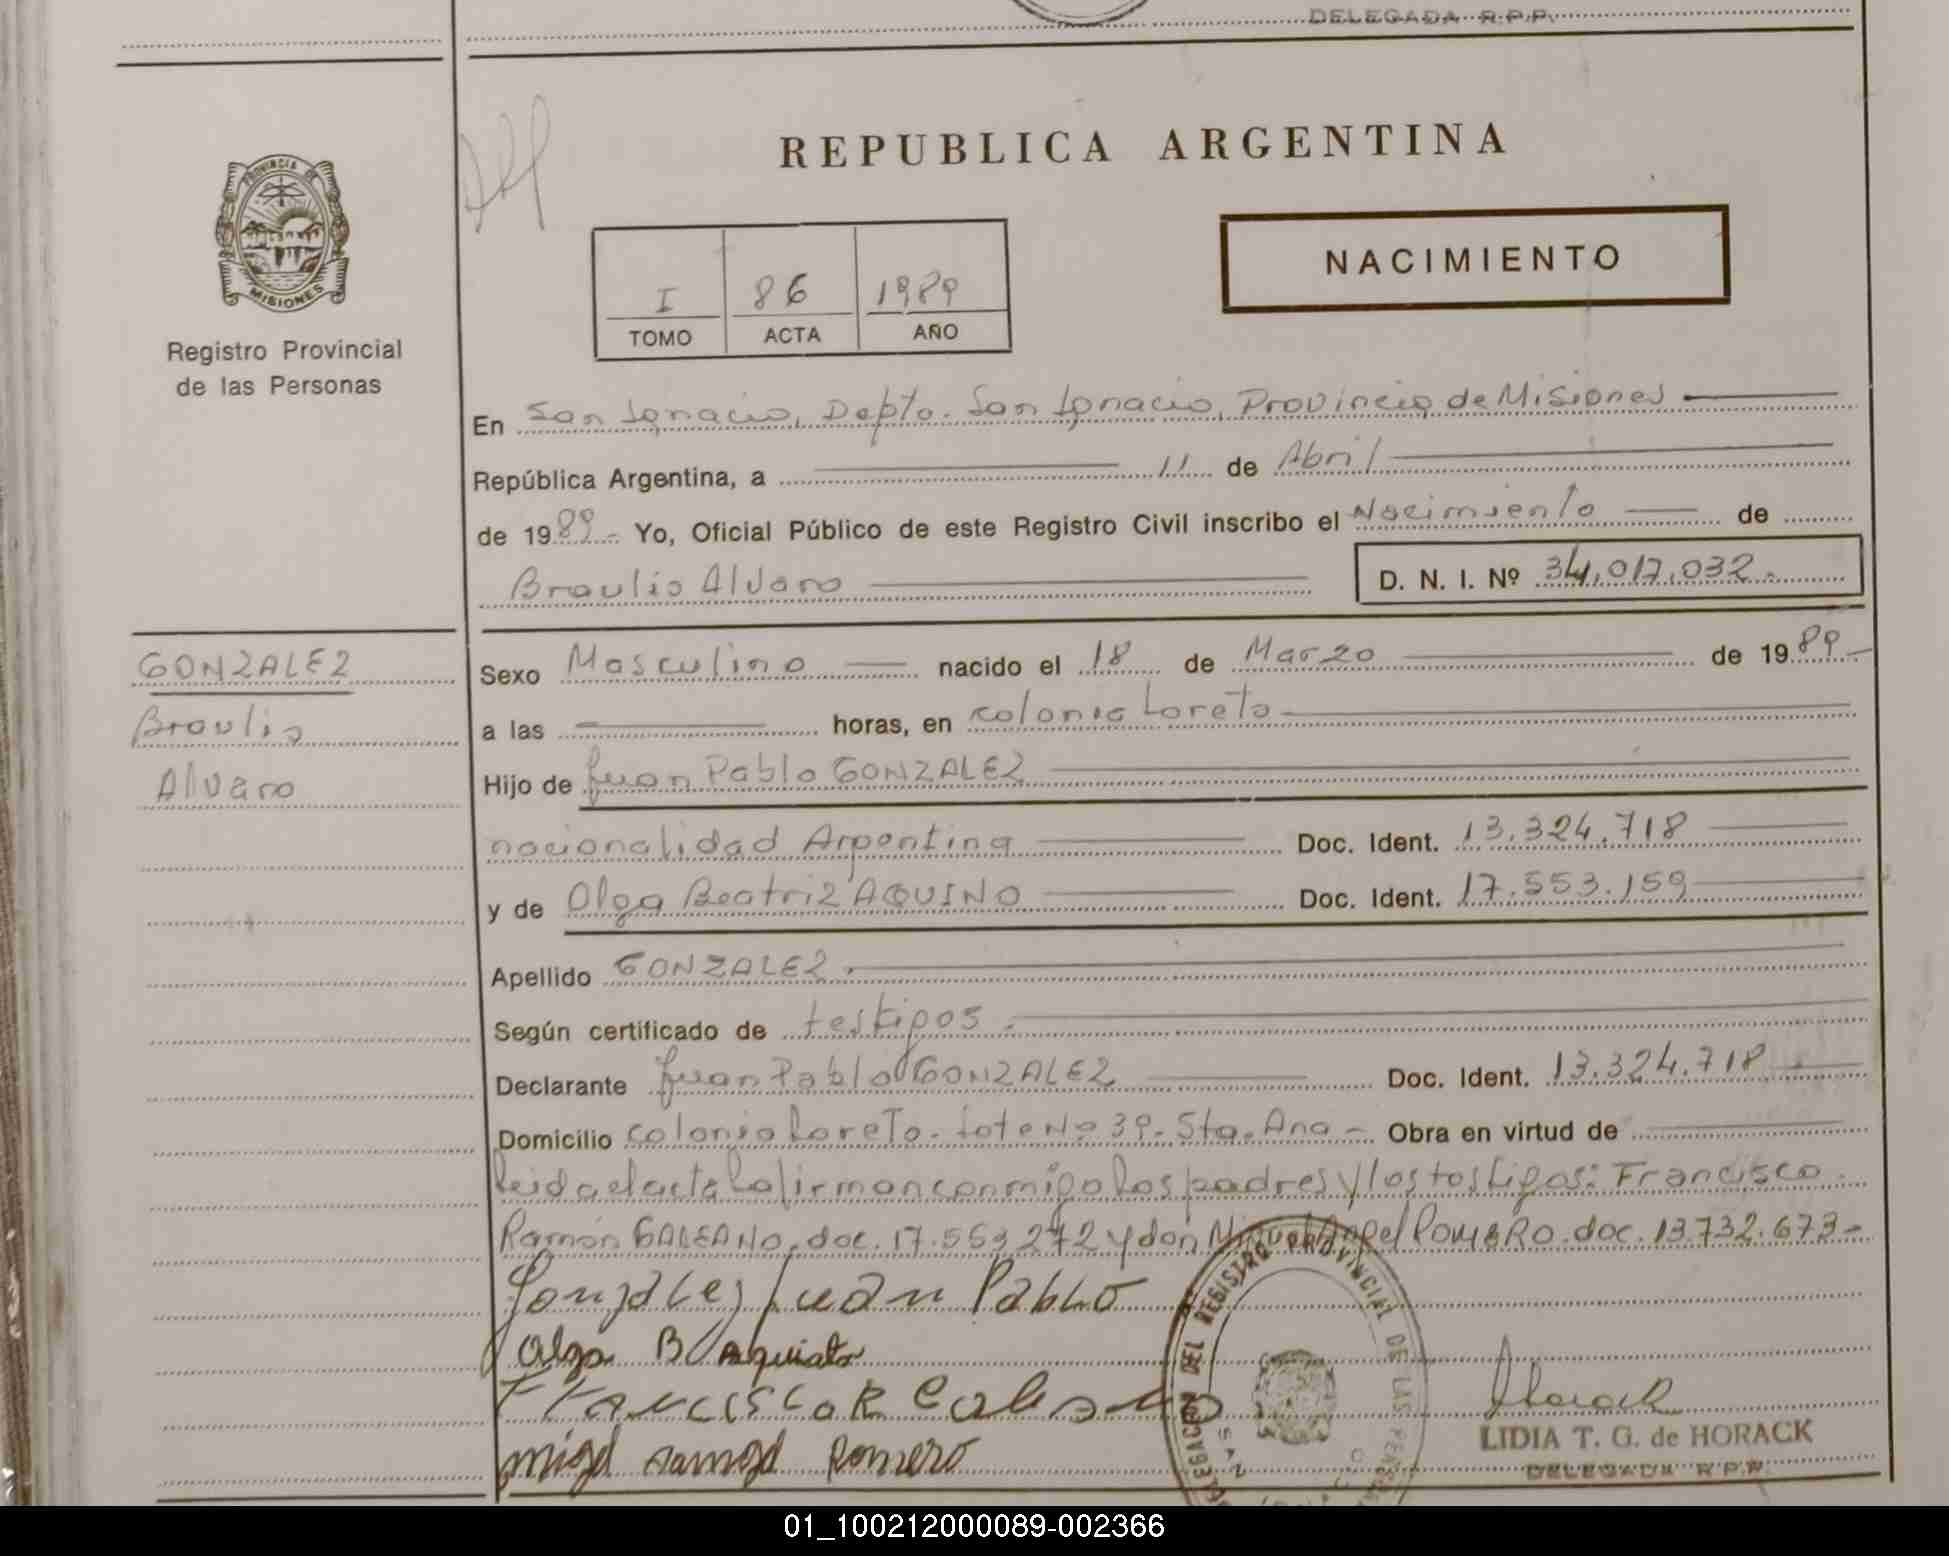 DELEGADA R.P.P.
REPUBLICA ARGENTINA
PROVINCIA DE
MISIONES
Registro Provincial
de las Personas
NACIMIENTO
I 86 1989
TOMO ACTA AÑO
En San Ignacio, Depto. San Ignacio, Provincia de Misiones
República Argentina, a 11 de Abril
de 1989.- Yo, Oficial Público de este Registro Civil inscribo el Nacimiento de
Braulio Alvaro D. N. I. Nº 34.017.032.-
GONZALEZ
Braulio
Alvaro
Sexo Masculino nacido el 18 de Marzo de 1989
a las horas, en colonia Loreto
Hijo de Juan Pablo GONZALEZ
nacionalidad Argentina Doc. Ident. 13.324.718
y de Olga Beatriz AQUINO Doc. Ident. 17.553.159
Apellido GONZALEZ.
Según certificado de testigos.
Declarante Juan Pablo GONZALEZ Doc. Ident. 13.324.718
Domicilio colonia Loreto. Lote Nº 39. Sta. Ana - Obra en virtud de
leida el acta la firman conmigo los padres y los testigos: Francisco
Ramón GALEANO. doc. 17.553.272 y don Miguel Angel ROMERO. doc. 13.732.673-
Gonzalez Juan Pablo
Olga B Aquino
Francisco R Galeano
Miguel Romero
DELEGACION DEL REGISTRO PROVINCIAL DE LAS PERSONAS
SAN
Horack
LIDIA T. G. de HORACK
DELEGADA R.P.P.
01_100212000089-002366